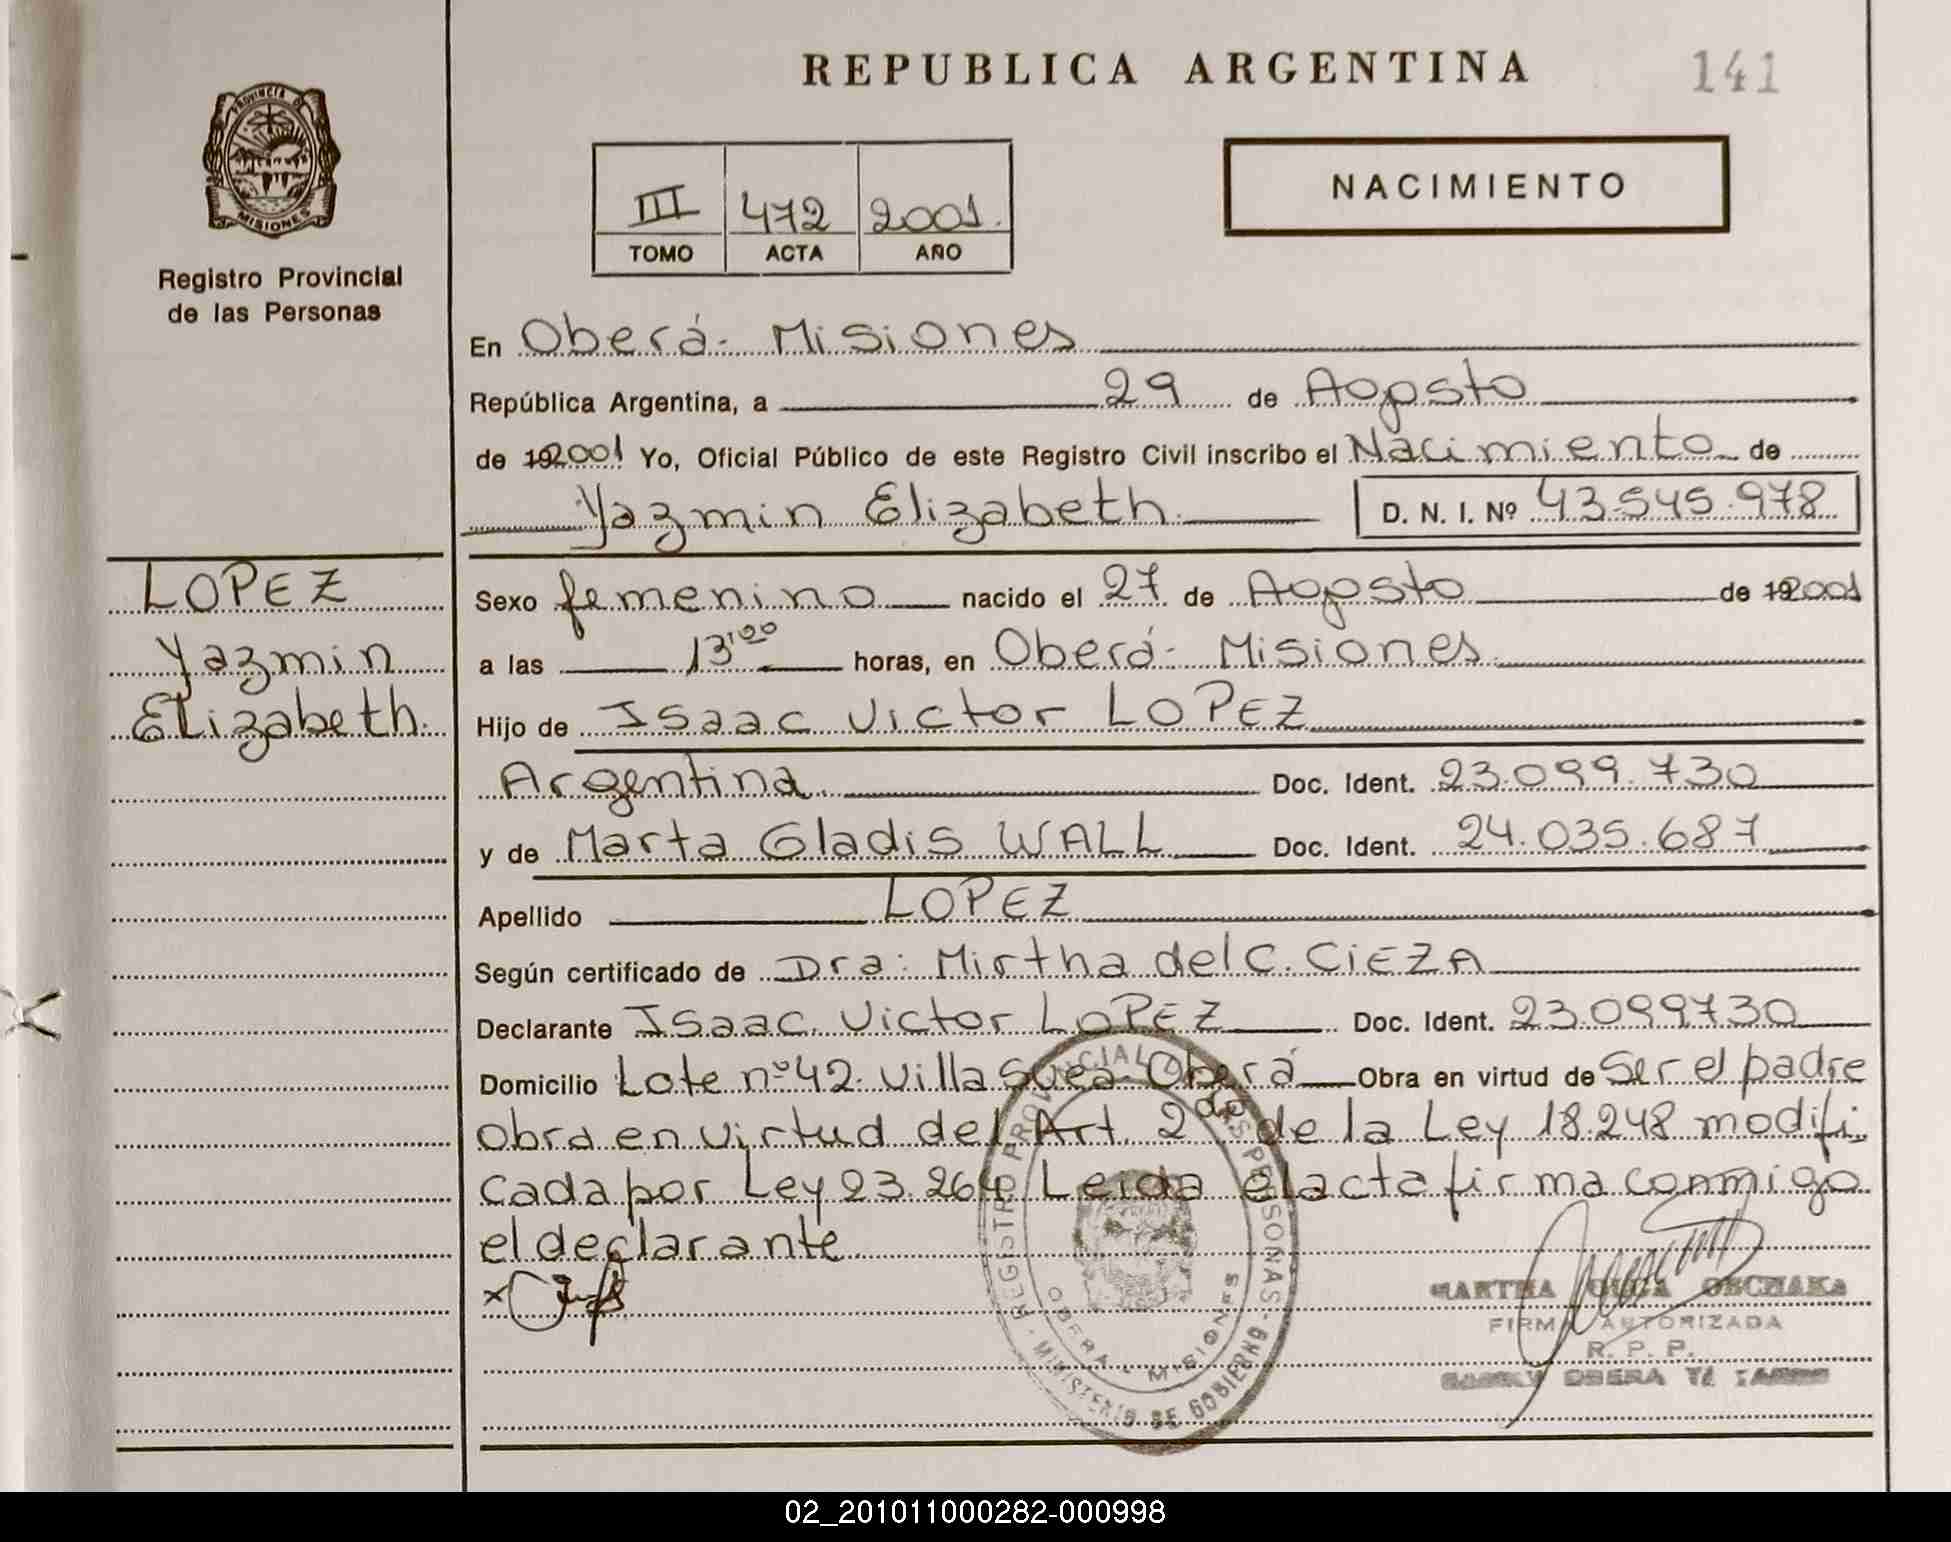 REPUBLICA ARGENTINA
141
PROVINCIA DE
MISIONES
Registro Provincial
de las Personas
III 472 2001.
TOMO ACTA AÑO
NACIMIENTO
En Oberá - Misiones
República Argentina, a 29 de Agosto
de 192001 Yo, Oficial Público de este Registro Civil inscribo el Nacimiento de
Yazmin Elizabeth. D. N. I. Nº 43.545.978
LOPEZ
Yazmin
Elizabeth.
Sexo femenino nacido el 27 de Agosto de 192001
a las 13'00 horas, en Oberá - Misiones
Hijo de Isaac Victor LOPEZ
Argentina. Doc. Ident. 23.099.730
y de Marta Gladis WALL Doc. Ident. 24.035.687
Apellido LOPEZ
Según certificado de Dra: Mirtha del C. CiEZA
Declarante Isaac Victor LOPEZ Doc. Ident. 23.099730
Domicilio Lote nº 42. Villa Svea - Oberá Obra en virtud de Ser el padre
obra en virtud del Art. 2do de la Ley 18.248 modifi
cada por Ley 23.264 Leida el acta firma conmigo
el declarante
REGISTRO PROVINCIAL DE LAS PERSONAS - MINISTERIO DE GOBIERNO
OBERA - MISIONES
MARTHA OLGA
FIRMA AUTORIZADA
R. P. P.
OBERA
02_201011000282-000998